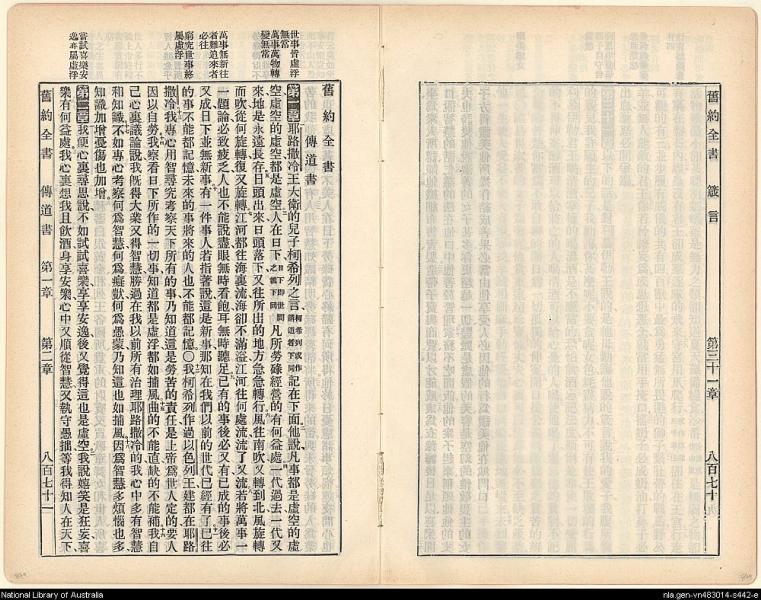 舊約全書 箴言 第三十一章 八百七十
世事皆虛浮
無常
萬事萬物轉
變無常
萬事無新往
者難追來者
必往
窮究世事終
屬虛浮
嘗試喜樂安
逸亦屬虛浮
舊約全書
傳道書
第一章 耶路撒冷王大衛的兒子柯希列之言 柯希列或作傳道者下同 記在下面他說凡事都是虛空的虛
空虛空的虛空都是虛空人在日下 日下即世間之意下同 凡所勞碌經營的有何益處一代過去一代又
來地是永遠長存日頭出來日頭落下又往所出的地方急急轉行風往南吹又轉到北風旋轉
而吹從何旋轉復又旋轉江河都往海裏流海卻不滿溢江河往何處流流了又流若將萬事一
一題論必致疲乏人也不能說盡眼無時看飽耳無時聽足已有的事後必又有已成的事後必
又成日下並無新事有一件事人若指著說這是新事那知在我們以前的世代已經有了已往
的事不能都記憶未來的事將來的人也不能都記憶〇我柯希列作過以色列王建都在耶路
撒冷我專心用智尋究考察天下所有的事乃知道這是勞苦的責任是上帝爲世人定的要人
因以自勞我察看日下所作的一切事知道都是虛浮都如捕風曲的不能直缺的不能補我自
己心裏議論說我旣得大業又得智慧勝過在我以前所有治理耶路撒冷的我心中多有智慧
和知識不如專心考察何爲智慧何爲癡獃何爲愚蒙乃知這也如捕風因爲智慧多煩惱也多
知識加增憂傷也加增
第二章 我便心裏尋思說不如試試喜樂享享安逸後又覺得這也是虛空我說嬉笑是狂妄喜
樂有何益處我心裏想我且飮酒身享安樂心中又順從智慧又執守愚拙等我得知人在天下
舊約全書 傳道書 第一章 第二章 八百七十一
National Library of Australia
nla.gen-vn483014-s442-e